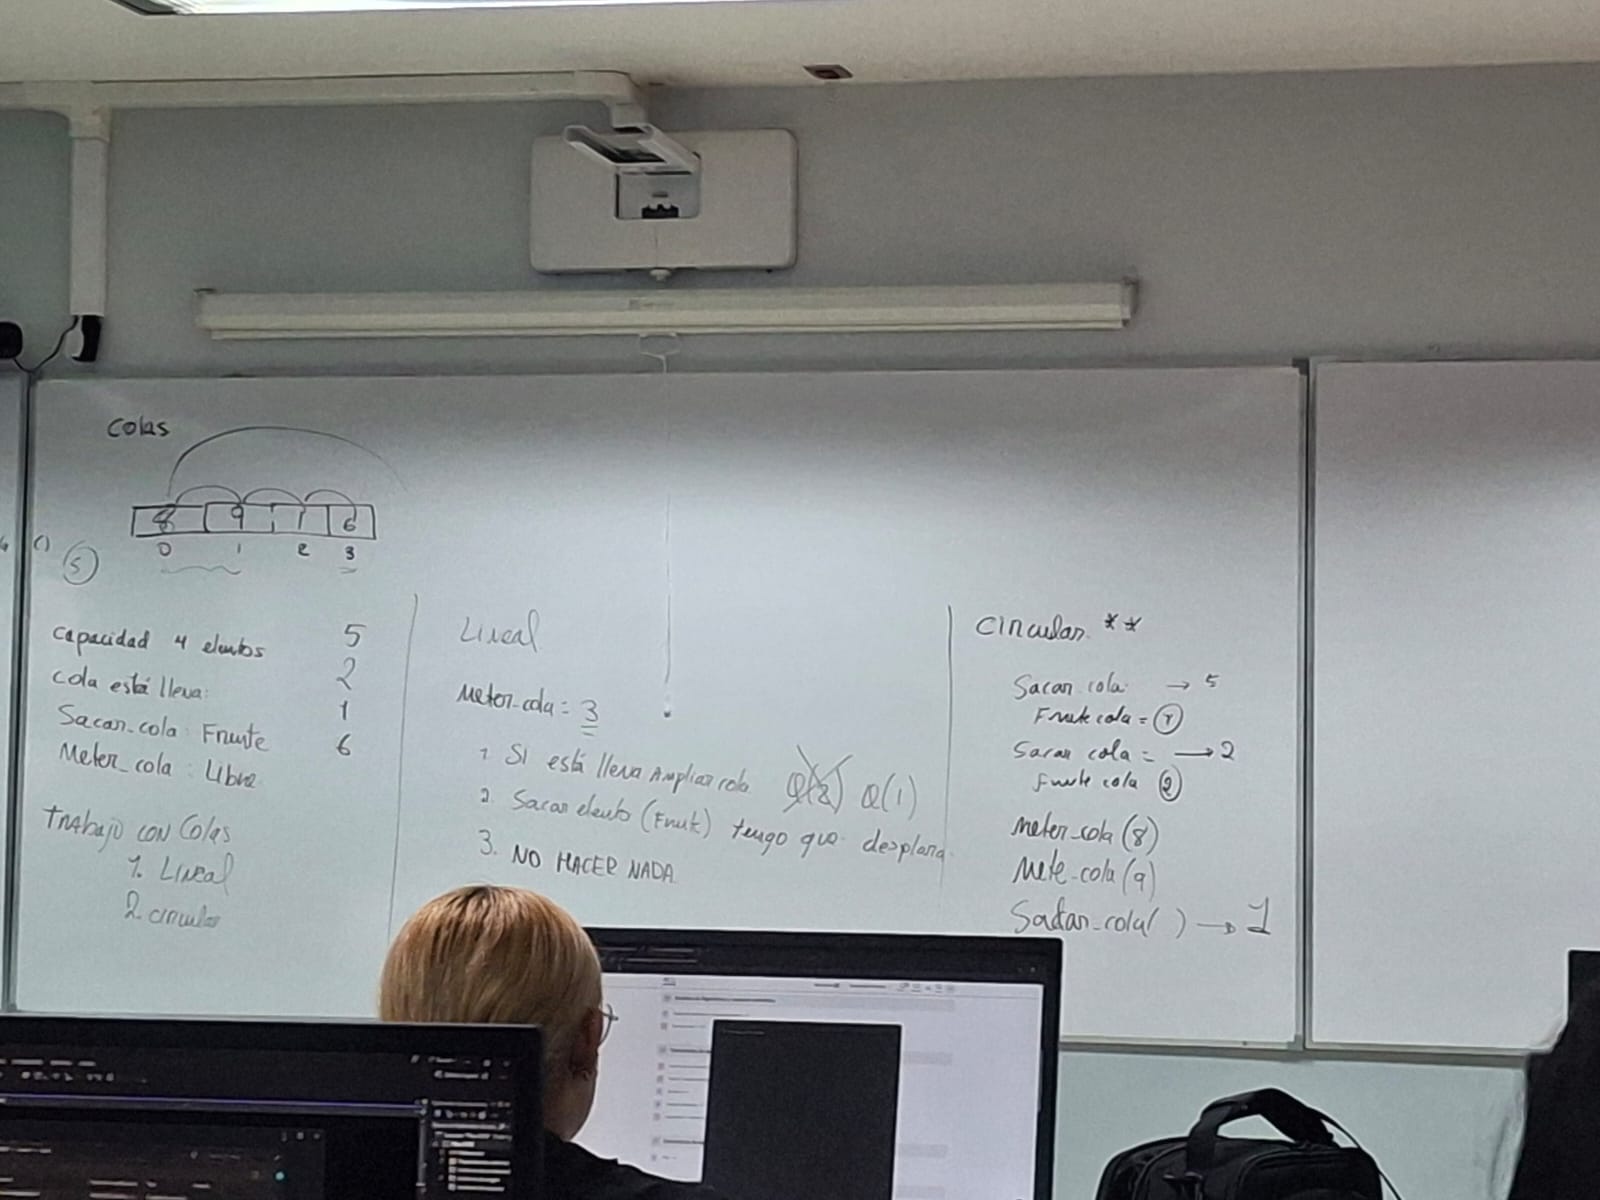 Colas
8 9 1 6
0 1 2 3
()
5
Capacidad 4 elentos 5
Cola está llena: 2
Sacar_cola: Frente 1
Meter_cola: Libre 6
Trabajo con Colas
1. Lineal
2. circular
Lineal
Meter_cola = 3
1. SI está llena Ampliar cola Q(2) Q(1)
2. Sacar elento (Frente) tengo que desplazar.
3. NO HACER NADA
Circular **
Sacar cola: → 5
Frente cola = 1
Sacar cola = → 2
Frente cola 2
Meter_cola (8)
Mete_cola (9)
Sacar_cola( ) → 1